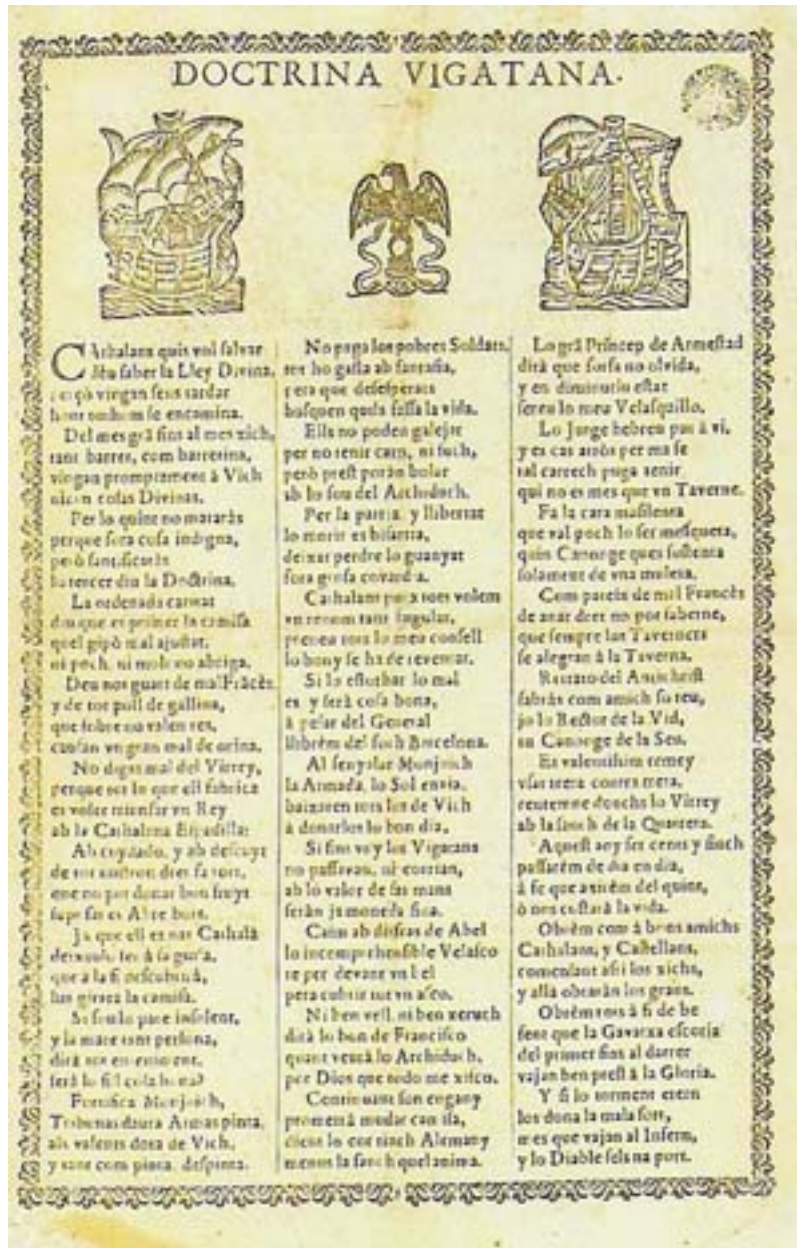 DOCTRINA VIGATANA.
Cathalans quis vol salvar
saber la Lley Divina,
vingan sens tardar
se encamina.
Del mes grã fins al mes xich,
tant barret, com barretina,
vingan promptament à Vich
cosas Divinas.
Per lo quint no mataràs
perque fora cosa indigna,
però santificaràs
la tercer diu la Doctrina.
La ordenada caritat
diu que es primer la camisa
quel gipò mal ajustat,
ni poch, ni molt no abriga.
Deu nos guart de mal Frãcès
y de tot poll de gallina,
que sobre no valen res,
causan vn gran mal de orina.
No digas mal del Virrey,
perque tot lo que ell fabrica
es voler triunfar vn Rey
ab la Cathalana Espadilla:
Ab cuydado, y ab descuyt
de tot
que no pot donar bon fruyt
Ja que ell es nat Cathalà
que a la fi
lus girarà la camisa.
Si sent lo pare insolent,
y la mare tant persona,
dirà tot
serà lo fill cosa bona?
Fortifica Monjuich,
Armas pinta,
als valents dota de Vich,
y tant com pinta despinta.
No paga los pobres Soldats,
tot ho gasta ab fantasia,
pera que desesperats
busquen quils fassa la vida.
Ells no poden galejar
per no tenir carn, ni such,
però prest poràn bolar
ab lo sou del Archiduch.
Per la patria y llibertat
lo morir es bisarria,
deixar perdre lo guanyat
fora grossa covardia.
Cathalans puix tots volem
vn renom tant singular,
preneu tots lo meu consell
lo bony se ha de rebentar.
Si lo estorbar lo mal
es y serà cosa bona,
à pesar del General
llibrèm del foch Barcelona.
Al senyalar Monjuich
la Armada, lo Sol envia,
baixaren tots los de Vich
à donarlos lo bon dia.
Si fins vuy los Vigatans
no passavan, ni corrian,
ab lo valor de sas mans
seràn ja moneda fina.
Caim ab disfras de Abel
lo incomprehensible Velasco
te per devant vn
pera cubrir tot vn asco.
Ni ben vell, ni ben
dirà lo bon de Francisco
quant veurà lo Archiduch,
por Dios que todo me
Continuant son engany
prometrà mudar
Alemany
menos la sanch quel anima.
Lo grã Princep de Armestad
dirà que forsa no olvida,
y en diminutiu estat
sereu lo meu Velasquillo.
Lo Jorge hebreu pas à vi,
y es cas atròs per ma fe
tal carrech puga tenir
qui no es mes que vn Taverne.
Fa la cara masilenta
que val poch lo ser mesqueta,
quin Canonge ques sustenta
solament de vna muleta.
Com pateix de mal Francès
de anar dret no pot saberne,
que sempre los Taverners
se alegran à la Taverna.
Retrato del Antichrist
sabràs com amich so teu,
jo lo Rector de la Vid,
tu Canonge de la Seu.
Es valentissim remey
vsar treta contra treta,
reutemne donchs lo Virrey
ab la sanch de la
Aquest any set cents y sinch
passarèm de dia en dia,
à fe que axirèm del quint,
ò nos costarà la vida.
Obrèm com à bons amichs
Cathalans, y Castellans,
comensant assi los xichs,
y allà obraràn los grans.
Obrèm tots à fi de be
fent que la Gavatxa escoria
del primer fins al darrer
vajan ben prest à la Gloria.
Y si lo torment etern
los dona la mala sort,
mes que vajan al Infern,
y lo Diable sels na port.